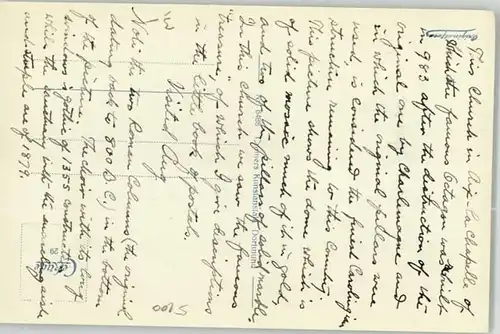 This Church in Aix La Chapelle of
which the famous Octagon was built
in 983 after the distruction of the
original one by Charlemagne and
in which the original plans were
used, is considered the finest Carlovingian
structure remaining to this Country.
This picture shows the dome which is
of solid mosaic much of it in gold,
and two of the pillars of solid marble.
In this Church we saw the famous
"treasure", of which I give descriptions
in the little book of postals.
Visited Aug
Note the two Roman Columns (the original
dating back to 800 B.C.) in the bottom
of the picture. The choir with its long
windows is gothic of 1355 construction
while the with the surrounding aisle
and steeple are of 1879.
Kunstanstalt Dortmund
5100